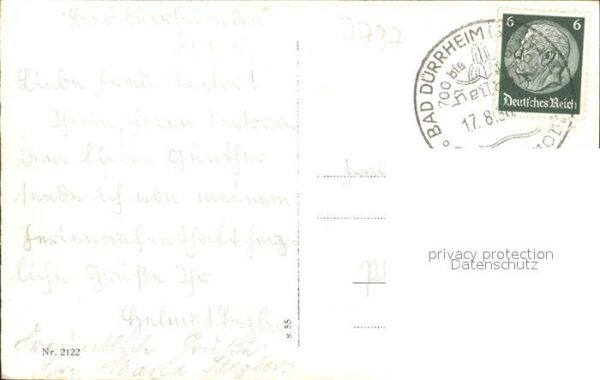 Bad Dürrheim den
17. 8. 36
Liebe Frau Doctor!
Ihnen, Herrn Doctor u.
dem lieben Günther
sende ich von meinem
Ferienaufenthalt herz-
liche Grüße Ihr
Helmut
Freundliche Grüße
Maria
Nr. 2122
S 55
7737
BAD DÜRRHEIM
700 bis
Heil
17.8.3
6 6
Deutsches Reich
privacy protection
Datenschutz